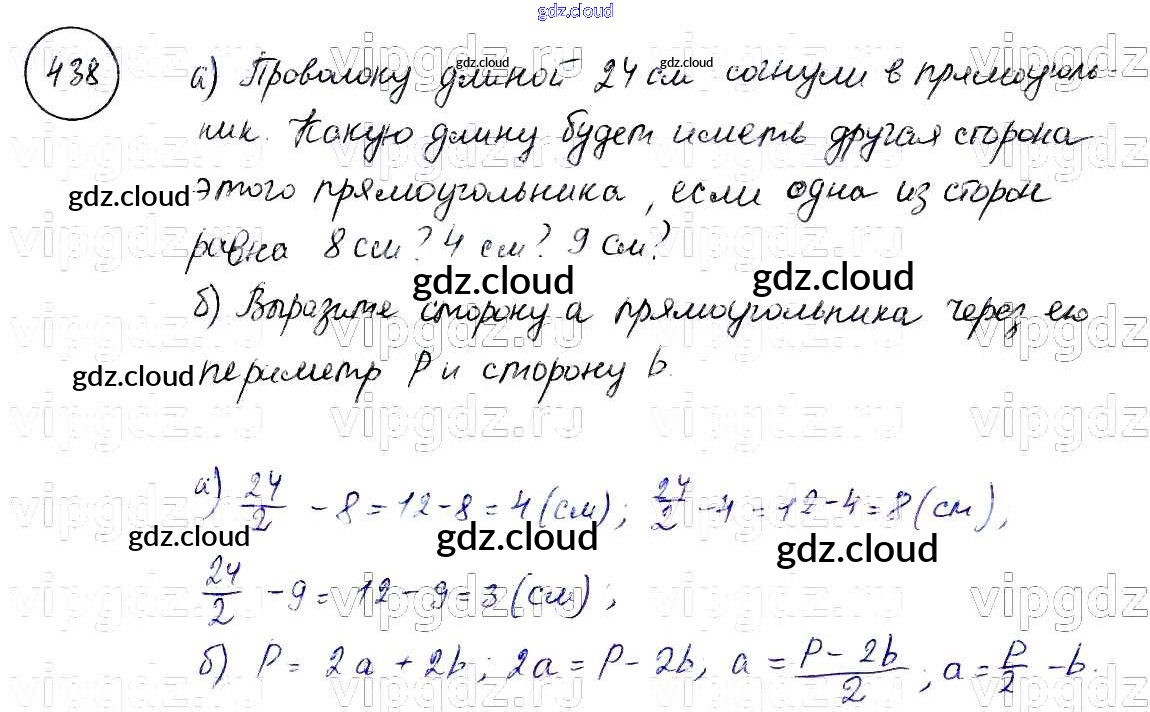 gdz.cloud
438
а) Проволоку длиной 24 см согнули в прямоуголь-
ник. Какую длину будет иметь другая сторона
этого прямоугольника, если одна из сторон
равна 8 см? 4 см? 9 см?
б) Выразите сторону a прямоугольника через его
периметр P и сторону b.
а) 24/2 - 8 = 12 - 8 = 4 (см); 24/2 - 4 = 12 - 4 = 8 (см);
24/2 - 9 = 12 - 9 = 3 (см);
б) P = 2a + 2b; 2a = P - 2b, a = (P - 2b)/2; a = P/2 - b.
gdz.cloud
gdz.cloud
gdz.cloud
gdz.cloud
gdz.cloud
gdz.cloud
gdz.cloud
gdz.cloud
gdz.cloud
vipgdz.ru